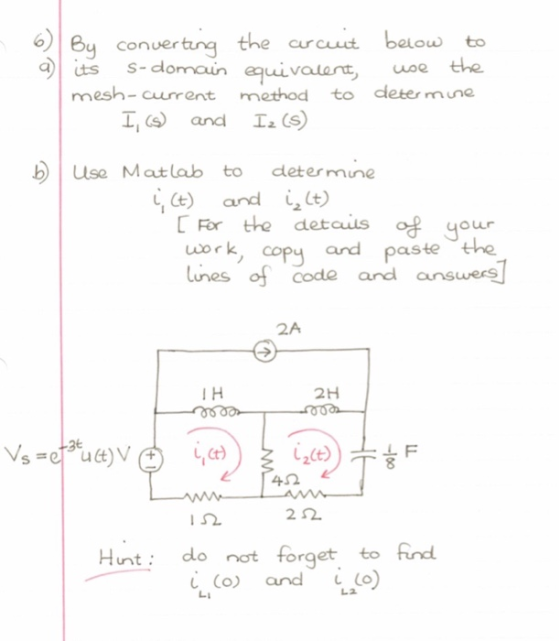 6) By converting the circuit below to
a) its s-domain equivalent, use the
mesh-current method to determine
I₁(s) and I₂(s)
b) Use Matlab to determine
i₁(t) and i₂(t)
[For the details of your
work, copy and paste the
lines of code and answers]
2A
1H 2H
Vs = e^-3t u(t) V + - i₁(t) i₂(t) 1/8 F
4Ω
1Ω 2Ω
Hint: do not forget to find
i_L1(0) and i_L2(0)